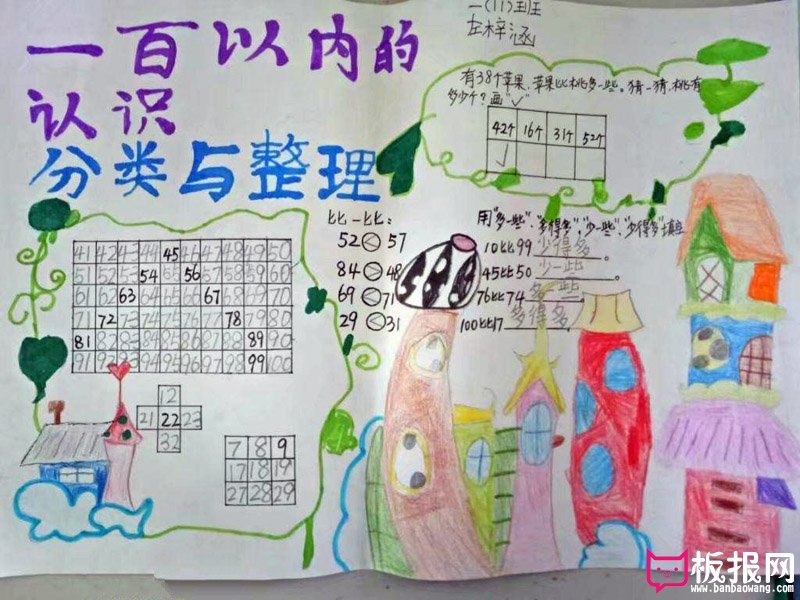 一百以内的
认识
分类与整理
(11)班
梓涵
有38个苹果,苹果比桃多一些。猜一猜,桃有
多少个?画"✓"
42个 16个 31个 52个
✓
41 42 43 44 45 46 47 48 49 50
51 52 53 54 55 56 57 58 59 60
61 62 63 64 65 66 67 68 69 70
71 72 73 74 75 76 77 78 79 80
81 82 83 84 85 86 87 88 89 90
91 92 93 94 95 96 97 98 99 100
12
21 22 23
32
7 8 9
17 18 19
27 28 29
比一比:
52 < 57
84 48
69 < 71
29 < 31
用"多一些","多得多","少一些","少得多"填空
10比99 少得多。
45比50 少一些。
76比74 多一些。
100比17 多得多。
板报网
www.banbaowang.com